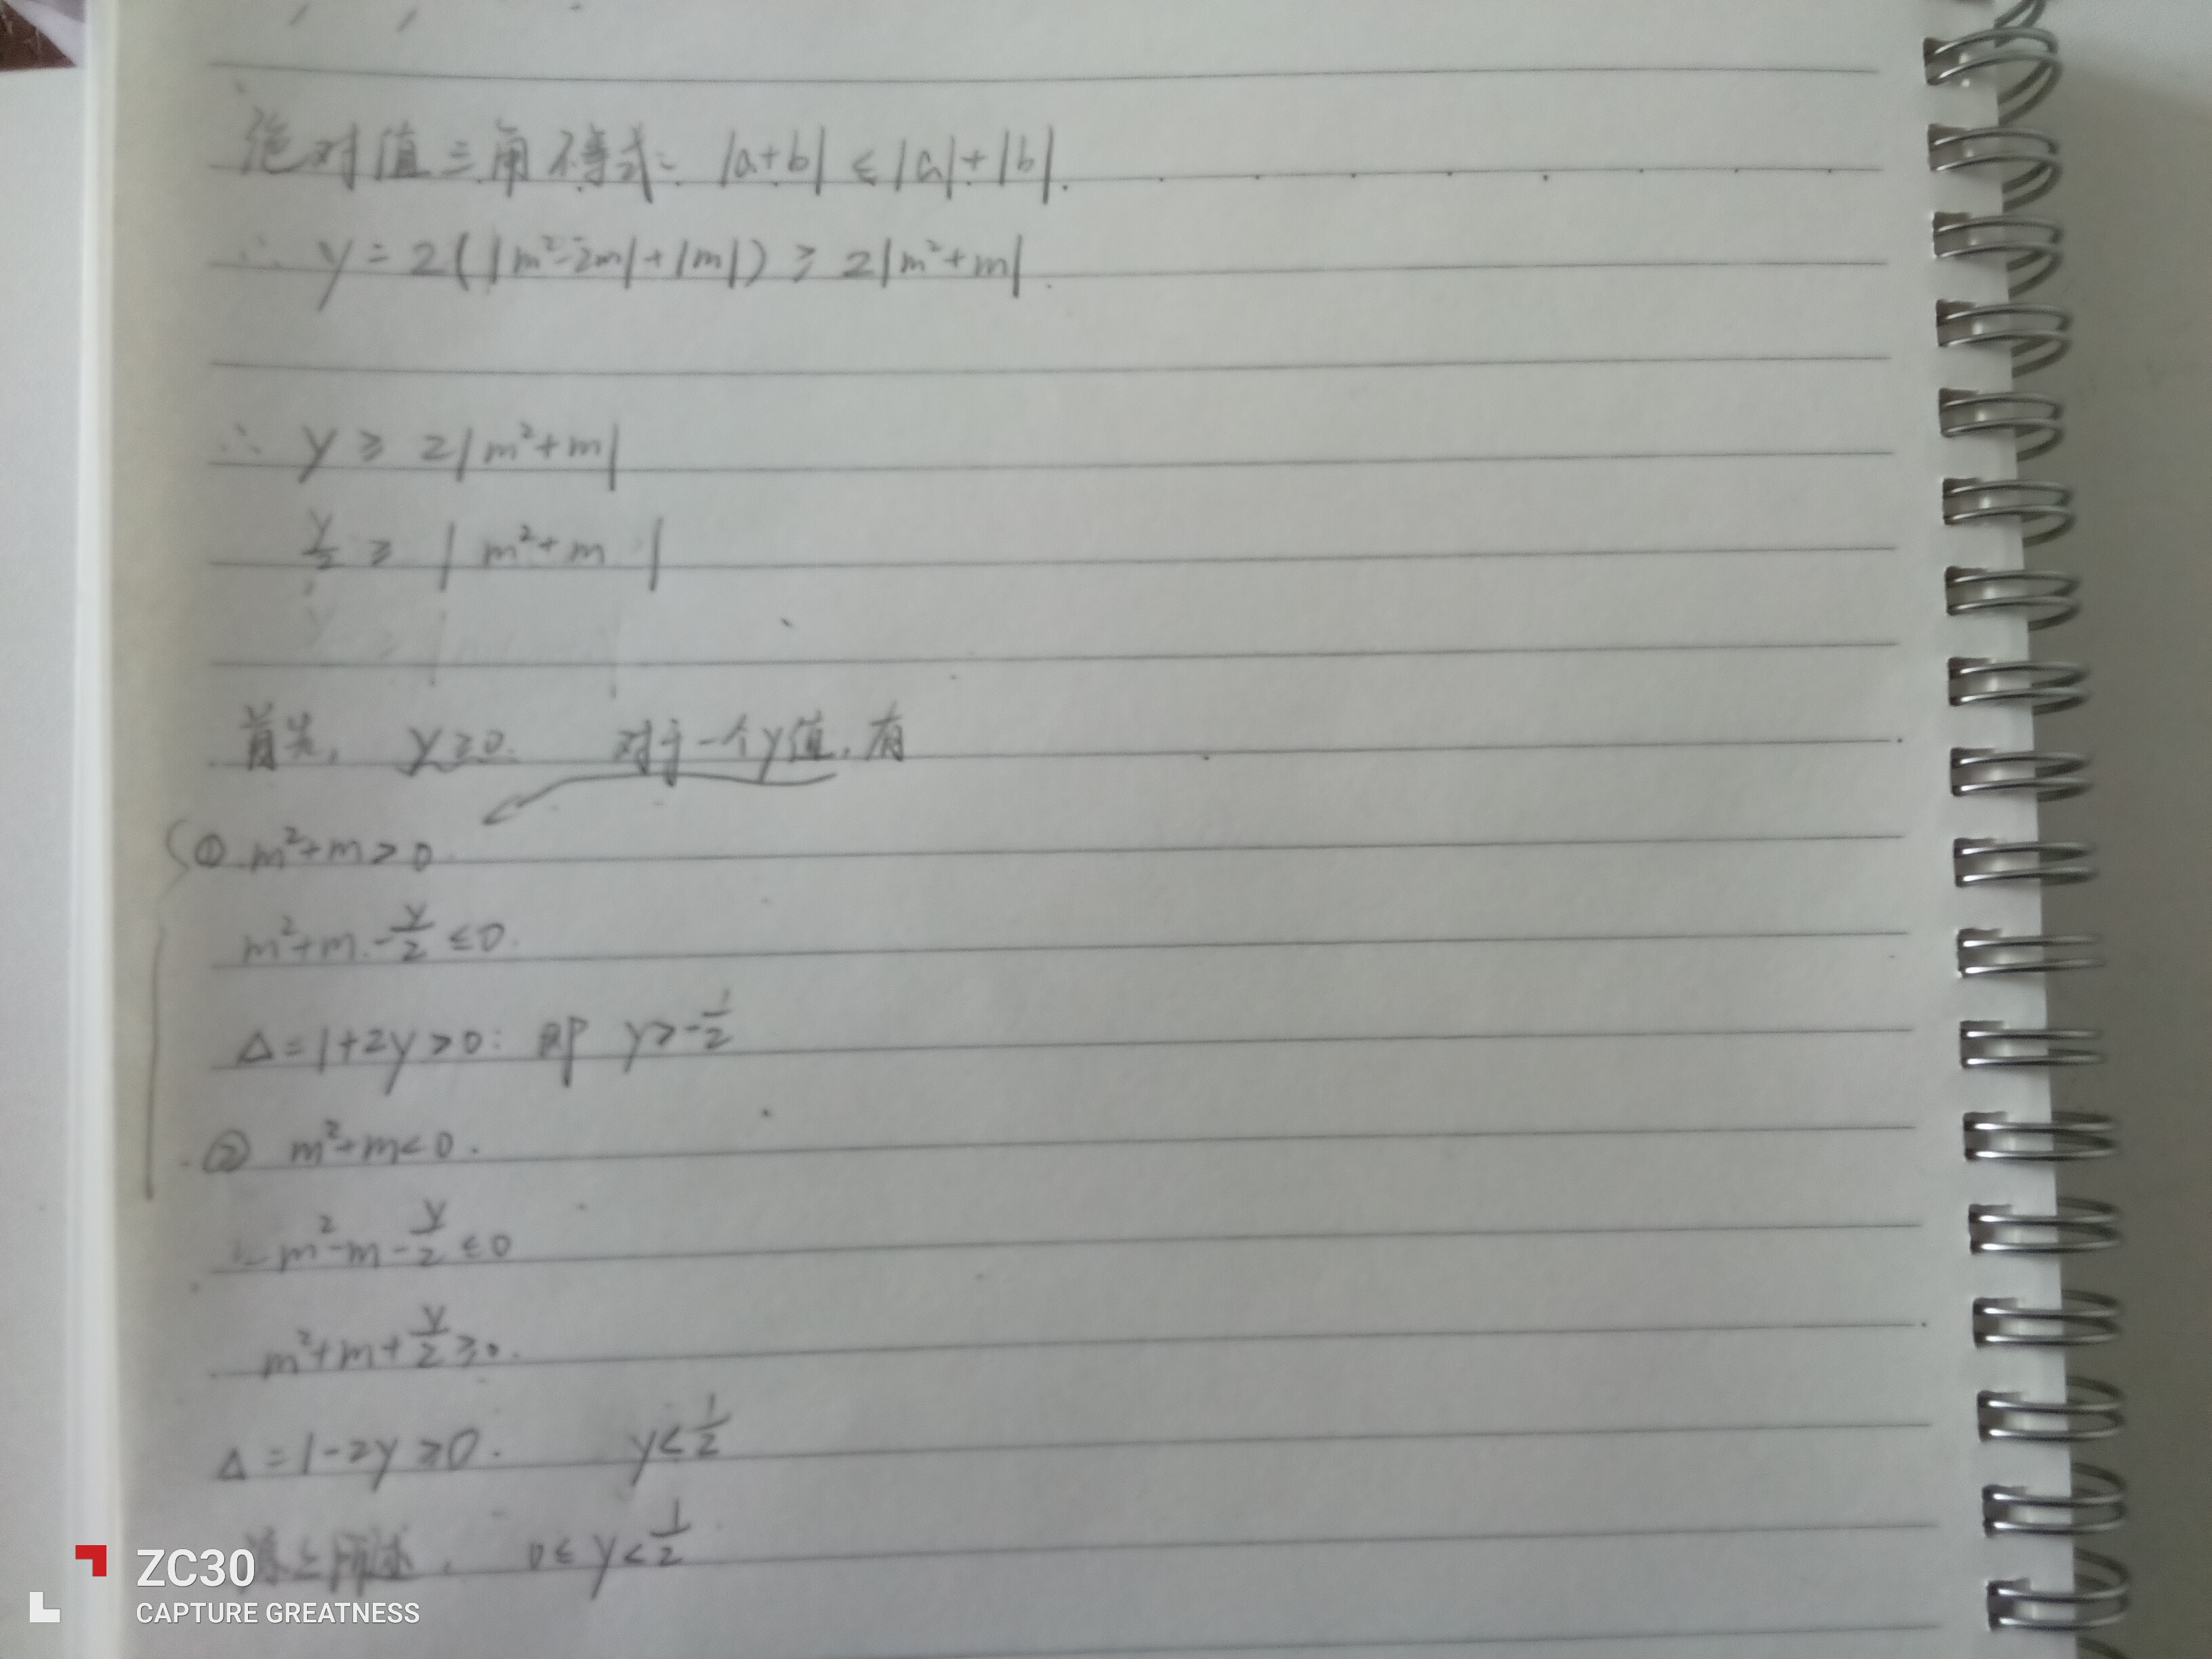 绝对值三角不等式: |a+b| ≤ |a|+|b|.
∴ y = 2(|m²-2m|+|m|) ≥ 2|m²+m|.
∴ y ≥ 2|m²+m|
y/2 ≥ | m²+m |
首先, y≥0. 对于一个y值, 有
① m²+m>0
m²+m-y/2 ≤0.
Δ=1+2y>0: 即 y>-1/2
② m²+m<0.
-m²-m-y/2 ≤0
m²+m+y/2 ≥0.
Δ=1-2y≥0. y<1/2
综上所述, 0≤y<1/2
ZC30
CAPTURE GREATNESS